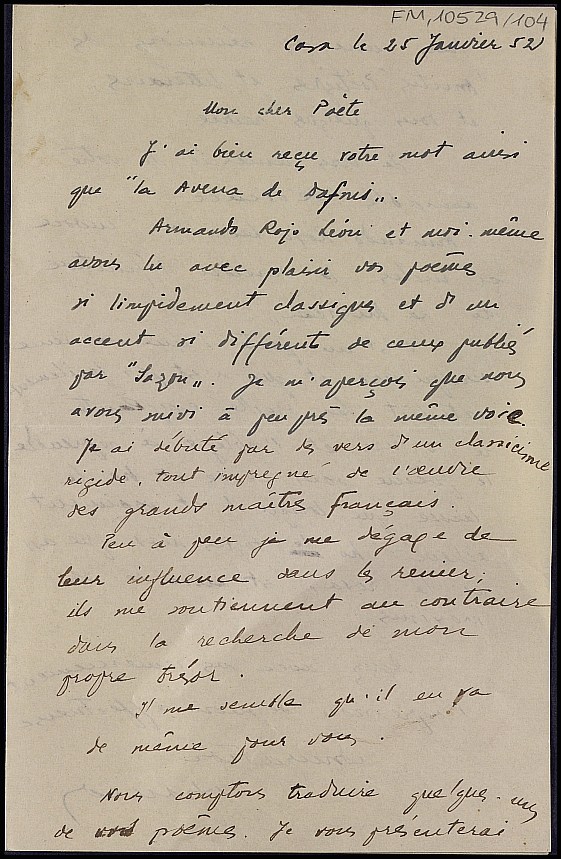 FM,10529/104
Casa le 25 Janvier 52
Mon cher Poète
J'ai bien reçu votre mot ainsi
que "la Avena de Dafnis".
Armando Rojo León et moi-même
avons lu avec plaisir vos poèmes
si limpidement classiques et d'un
accent si différent de ceux publiés
par "Sazon". Je m'aperçois que nous
avons suivi à peu près la même voie.
J'ai débuté par des vers d'un classicisme
rigide, tout imprégné de l'oeuvre
des grands maîtres Français.
Peu à peu je me dégage de
leur influence sans les renier;
ils me soutiennent au contraire
dans la recherche de mon
propre trésor.
Il me semble qu'il en va
de même pour vous.
Nous comptons traduire quelques-uns
de vos poèmes. Je vous présenterai